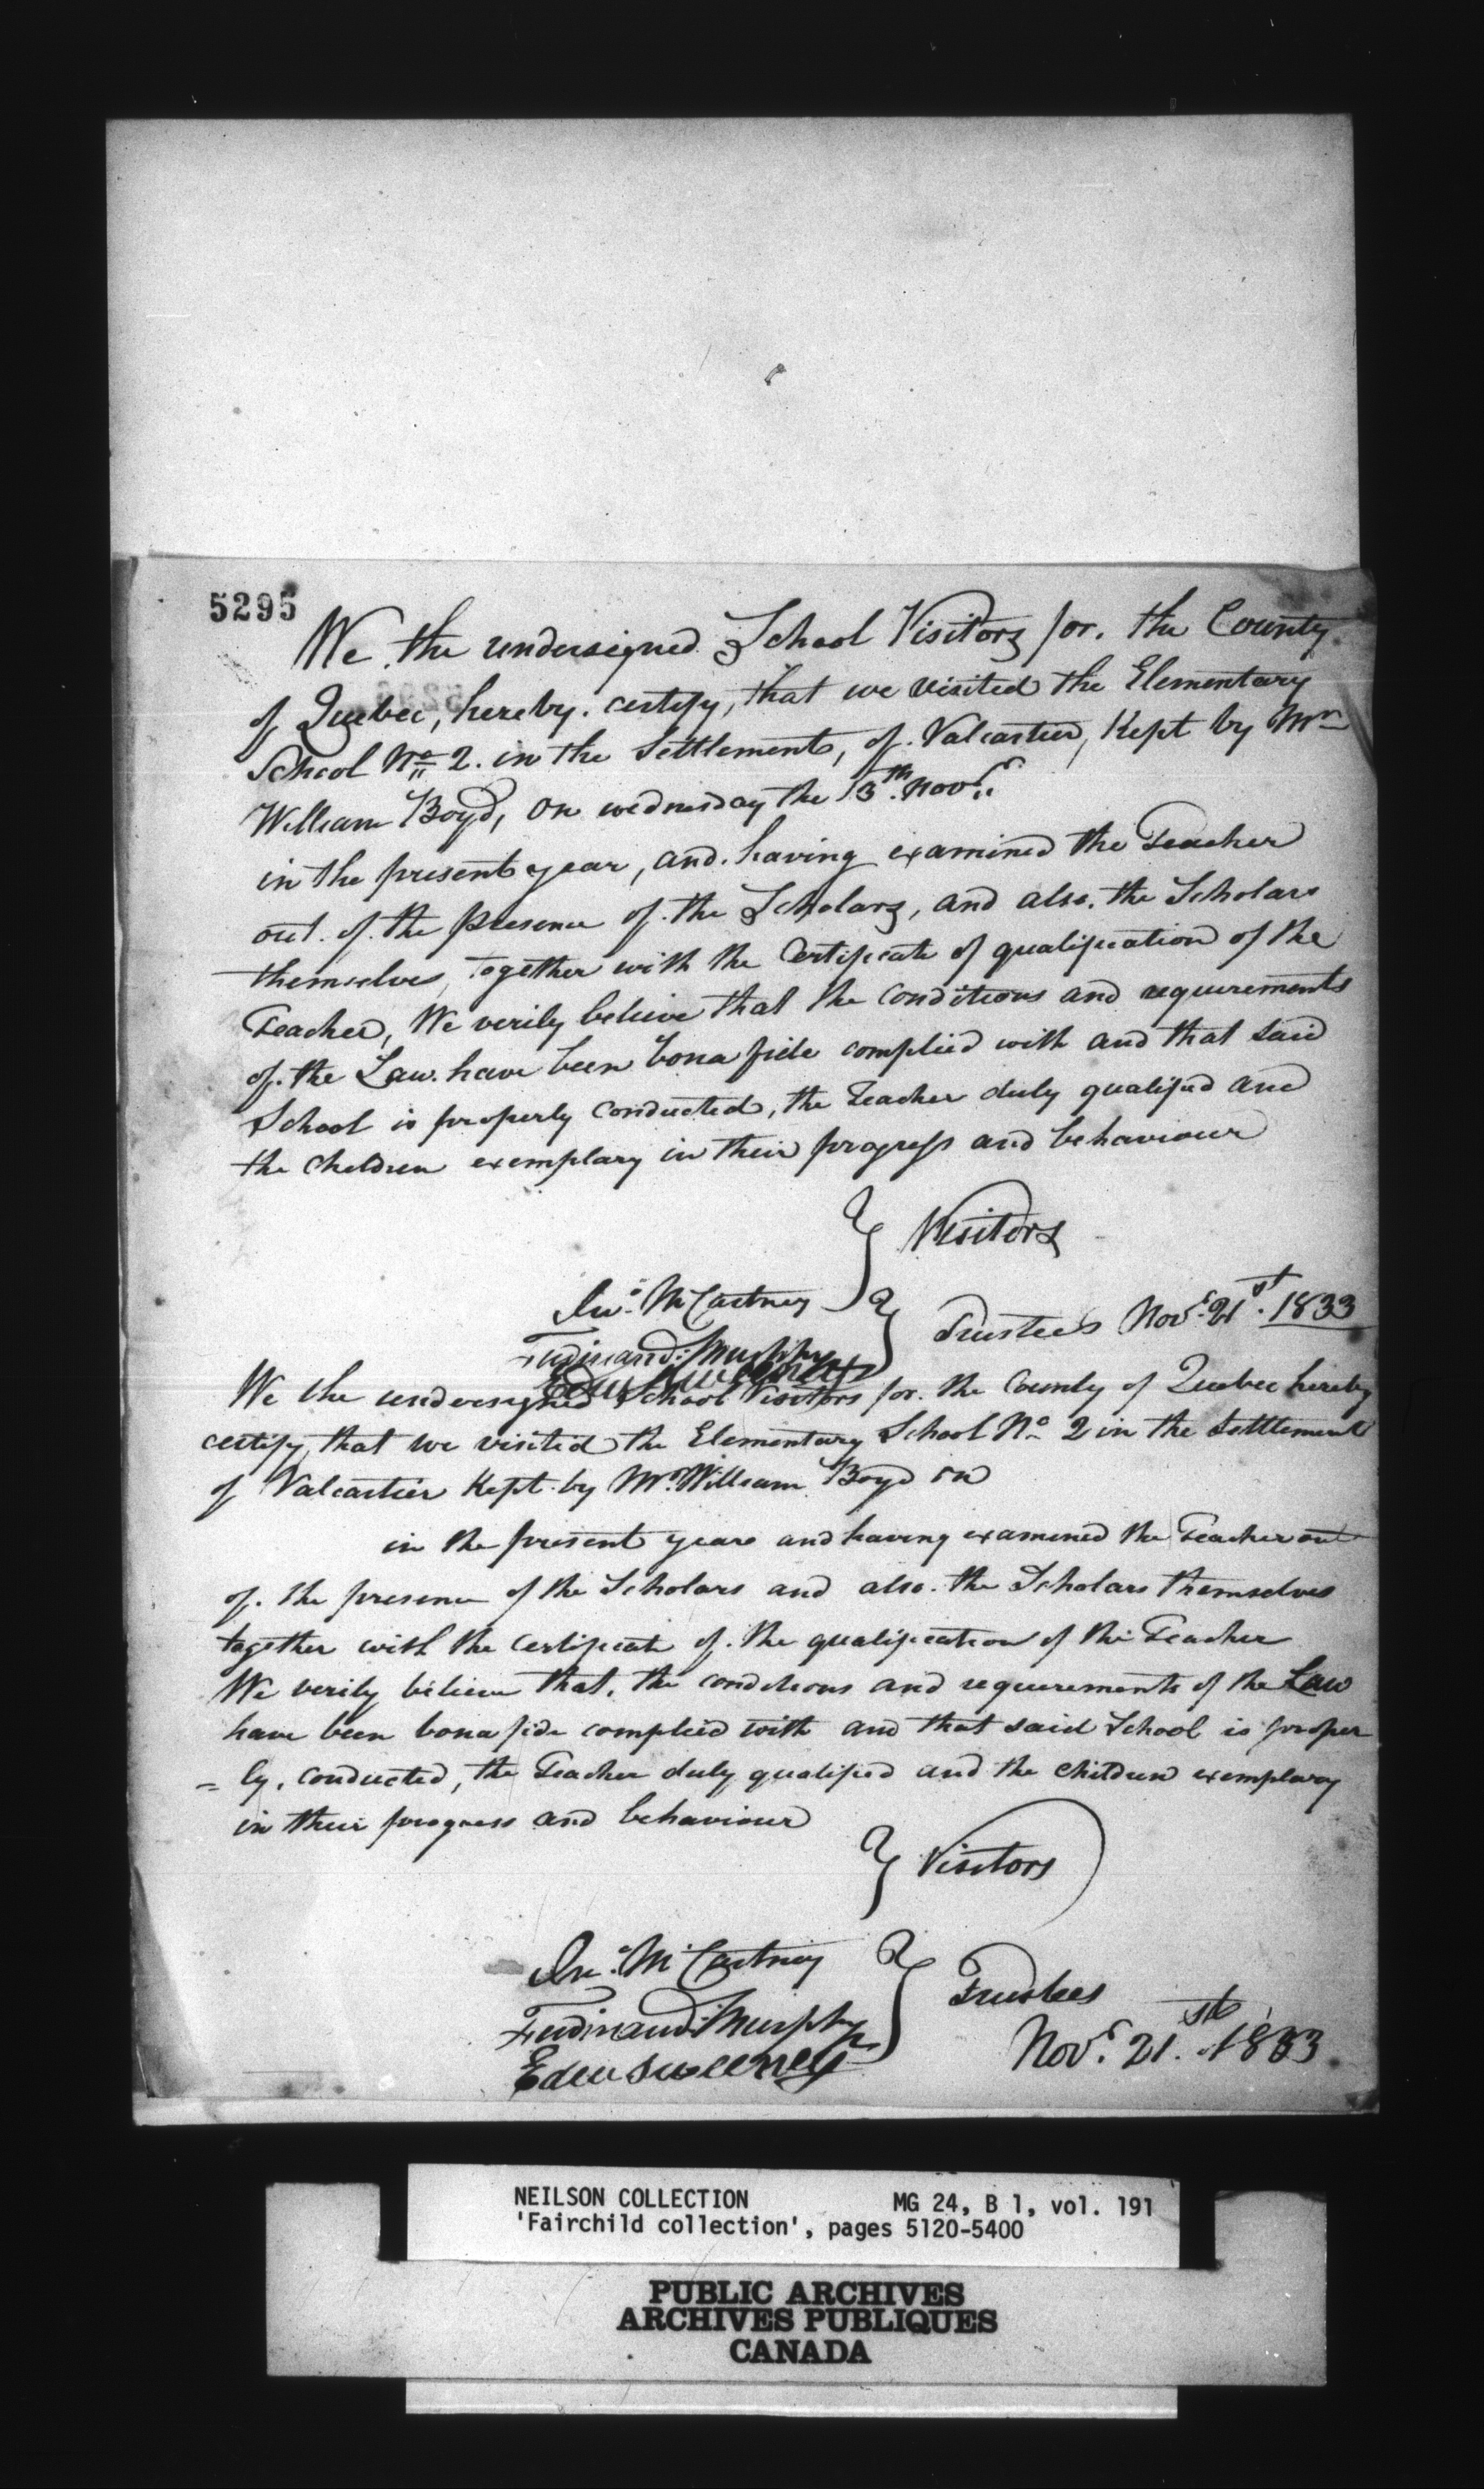 5295
We the undersigned School Visitors for the County
of Quebec, hereby certify, that we visited the Elementary
School No 2. in the Settlement, of Valcartier, Kept by Mr
William Boyd, on wednesday the 13th Novr
in the present year, and having examined the Teacher
out of the presence of the Scholars, and also the Scholars
themselves, together with the Certificate of qualification of the
Teacher, We verily believe that the conditions and requirements
of the Law have been bona fide complied with and that said
School is properly conducted, the teacher duly qualified and
the children exemplary in their progress and behaviour
} Visitors
Jno. McCartney
Ferdinand Murphy
Edw Sweeney
} Trustees Novr 21st 1833
We the undersigned School Visitors for the County of Quebec hereby
certify that we visited the Elementary School No 2 in the Settlement
of Valcartier Kept by Mr William Boyd on
in the present year and having examined the Teacher out
of the presence of the Scholars and also the Scholars themselves
together with the Certificate of the qualification of the Teacher
We verily believe that, the conditions and requirements of the Law
have been bona fide complied with and that said School is proper
= ly, conducted, the Teacher duly qualified and the children exemplary
in their progress and behaviour
} Visitors
Jno. McCartney
Ferdinand Murphy
Edw Sweeney
} Trustees
Novr 21st 1833
NEILSON COLLECTION MG 24, B 1, vol. 191
'Fairchild collection', pages 5120-5400
PUBLIC ARCHIVES
ARCHIVES PUBLIQUES
CANADA